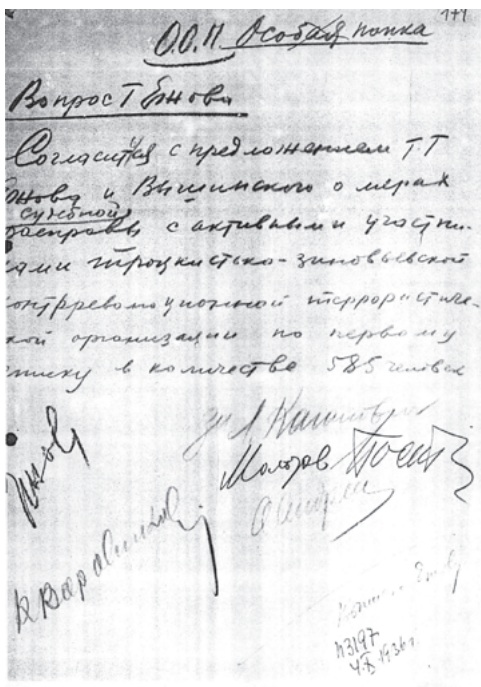 171
О.О.П. Особая папка
Вопрос т Ежова
Согласиться с предложением т.т
Ежова и Вышинского о мерах
судебной
расправы с активными участни-
ками троцкистско-зиновьевской
контрреволюционной террористиче-
ской организации по первому
списку в количестве 585 человек
за Л Каганович
Молотов Посты
Ежов
К Ворошилов
Ежову
N3197
4.X 1936 г.